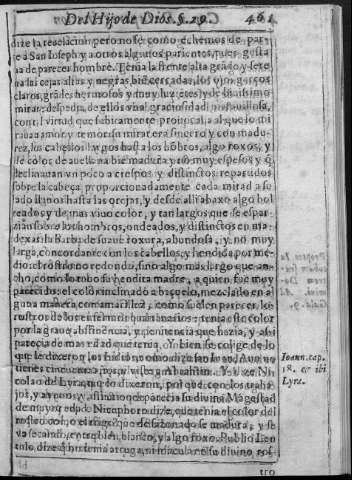 Del Hijo de Dios. §. 29. 461
dize la revelacion, pero no sè como echemos de par-
te a San Ioseph, y a otros algunos parientos, pues gusta
na de parecer hombre. Tenia la frente alta grãde, y sere
na las cejas altas y negras biẽ cercadas, los ojos garços
claros, grãdes hermosos y muy
mirar, despedia de ellos vna graciosidad
con virtud que subitamente provocaua al que lo mi
raua a amor y temor: su mirar era sincero y con madu-
rez, los cabellos largos hasta los hõbros, algo roxos, y
de color de auellana biẽ madura y no muy espesos y q̃
declinauan vn poco a crespos y distinctos repartidos
sobre la cabeça proporcionadamente cada mitad a su
lado llanos hasta las orejas, y desde alli abaxo algo bol
teados y de mas viuo color, y tan largos que se espar-
zian sobre los hombros, ondeados, y distinctos en ma-
dexas: la Barba de suaue roxura, abundosa, y no muy
larga, concordante con los cabellos, y hendida por me-
dio: el rostro no redondo, sino algo mas largo que an-
cho, como lo tubo su bendita madre, a quien fue muy
parecido: el color inclinado a trigueño, mezclado en al
guna manera con amarillez, como suelen parecer los
rostros de los enfermos humanarios: tenia este color
por la gran abstinencia, y penitencia que hazia, y assi
parecia de mas edad que tenia. O y bien se colige de lo
que le dixeron los Iudios no
tienes cincuenta años, y viste a Abrahan. Y dize Ni-
colao de Lyra, que lo dixeron, por que con los traba-
jos, y ayunos, y assi no que parecia su divina Magestad
de mayor edad. Nicephoro dize, que tenia el color del
rostro como el trigo que de sazonado se madura, y se
va secando, entre biẽ blanco, y algo roxo. Publio Len-
tulo, dize que ni tenia arruga, ni macula en su divino, ros-
tro
Ioann. cap.
18. & ibi
Lyra.